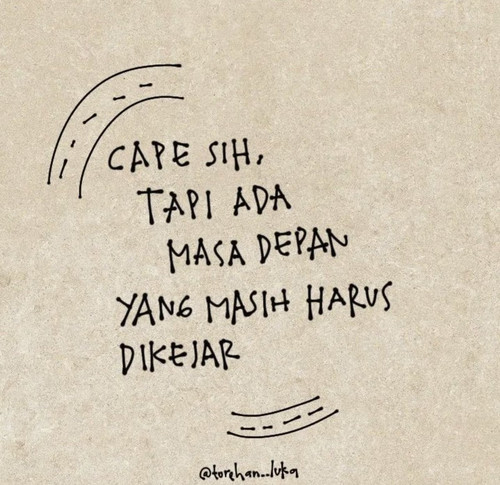 CAPE SIH,
TAPI ADA
MASA DEPAN
YANG MASIH HARUS
DIKEJAR
@torehan__luka